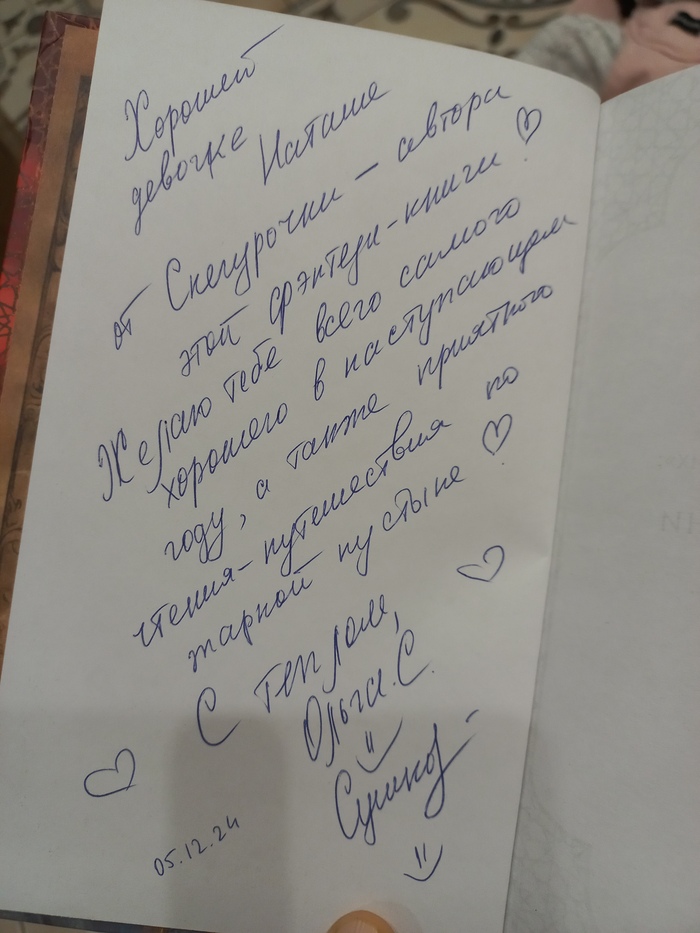 Хорошей
девочке Наташе
от Снегурочки – автора
этой фэнтези-книги
Желаю тебе всего самого
хорошего в наступающем
году, а также приятного
чтения-путешествия по
жаркой пустыне
С теплом,
Ольга С.
05.12.24